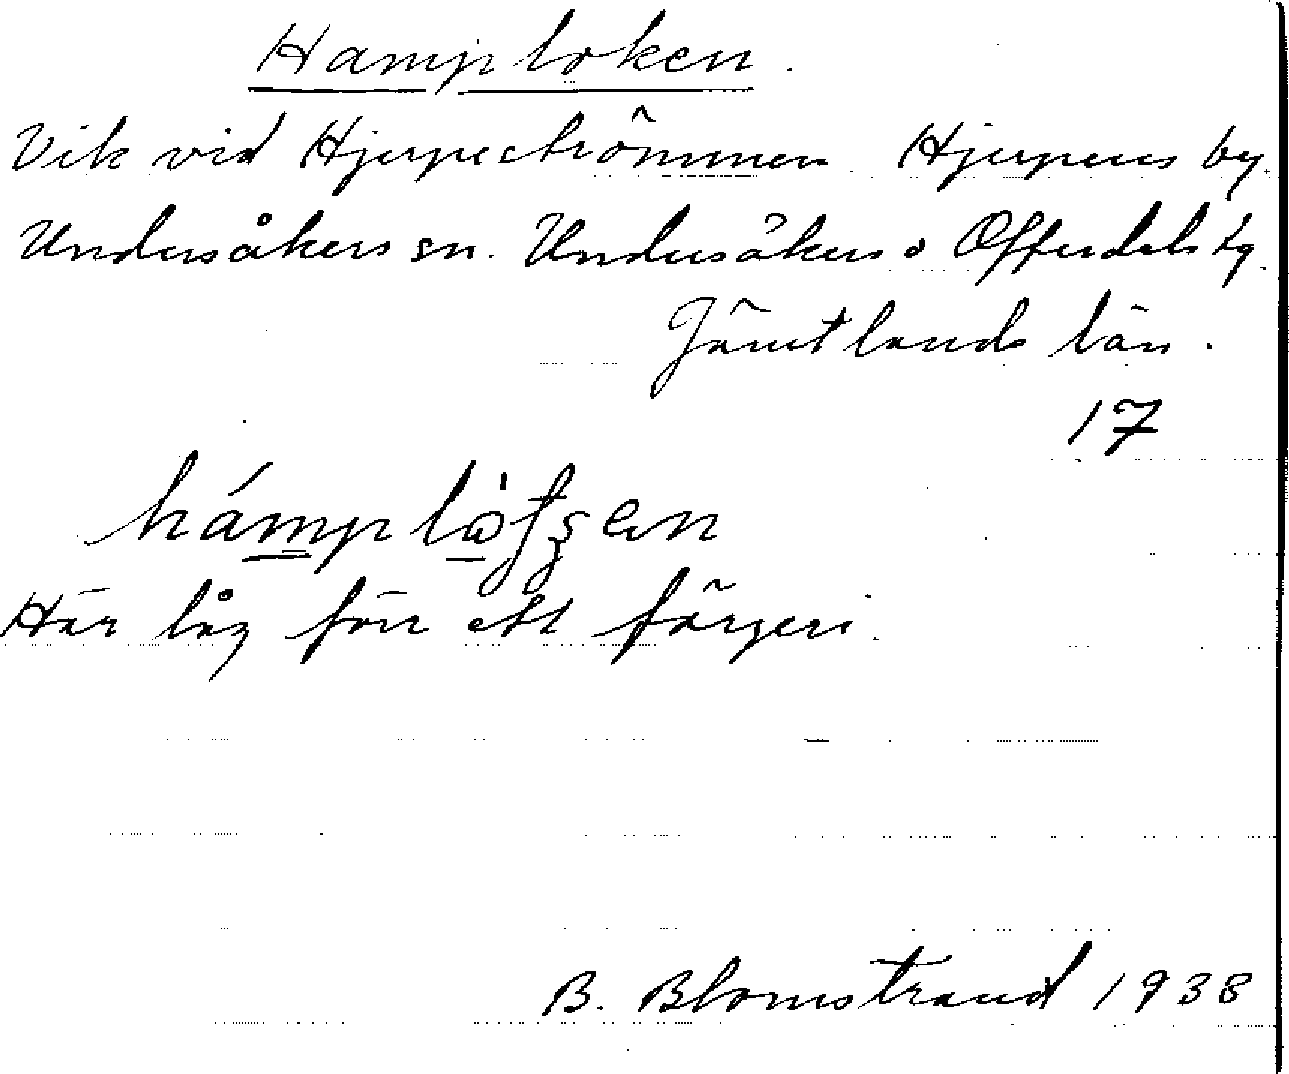 Hamploken.
Vik vid Hjerpeströmmen Hjerpens by.
Undersåkers sn. Undersåkers o Offerdals tg.
Jämtlands län.
17
Här låg förr ett färgeri.
B. Blomstrand 1938